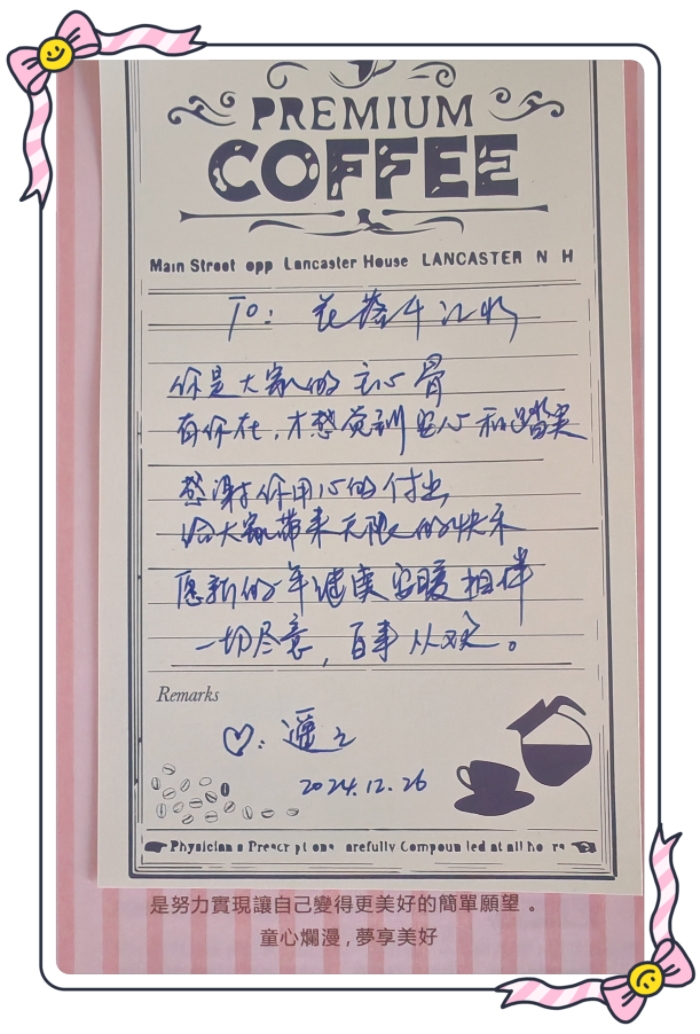 PREMIUM
COFFEE
Main Street opp Lancaster House LANCASTER N H
To: 花落千江水
你是大家的主心骨
有你在,才感觉到安心和踏实
感谢你用心的付出,
给大家带来无限的快乐
愿新的一年健康安暖相伴
一切尽意,百事从欢。
Remarks
♡:
2024.12.26
Physician s Prescr pt ons arefully Compoun led at all ho rs
是努力實現讓自己變得更美好的簡單願望。
童心爛漫,夢享美好